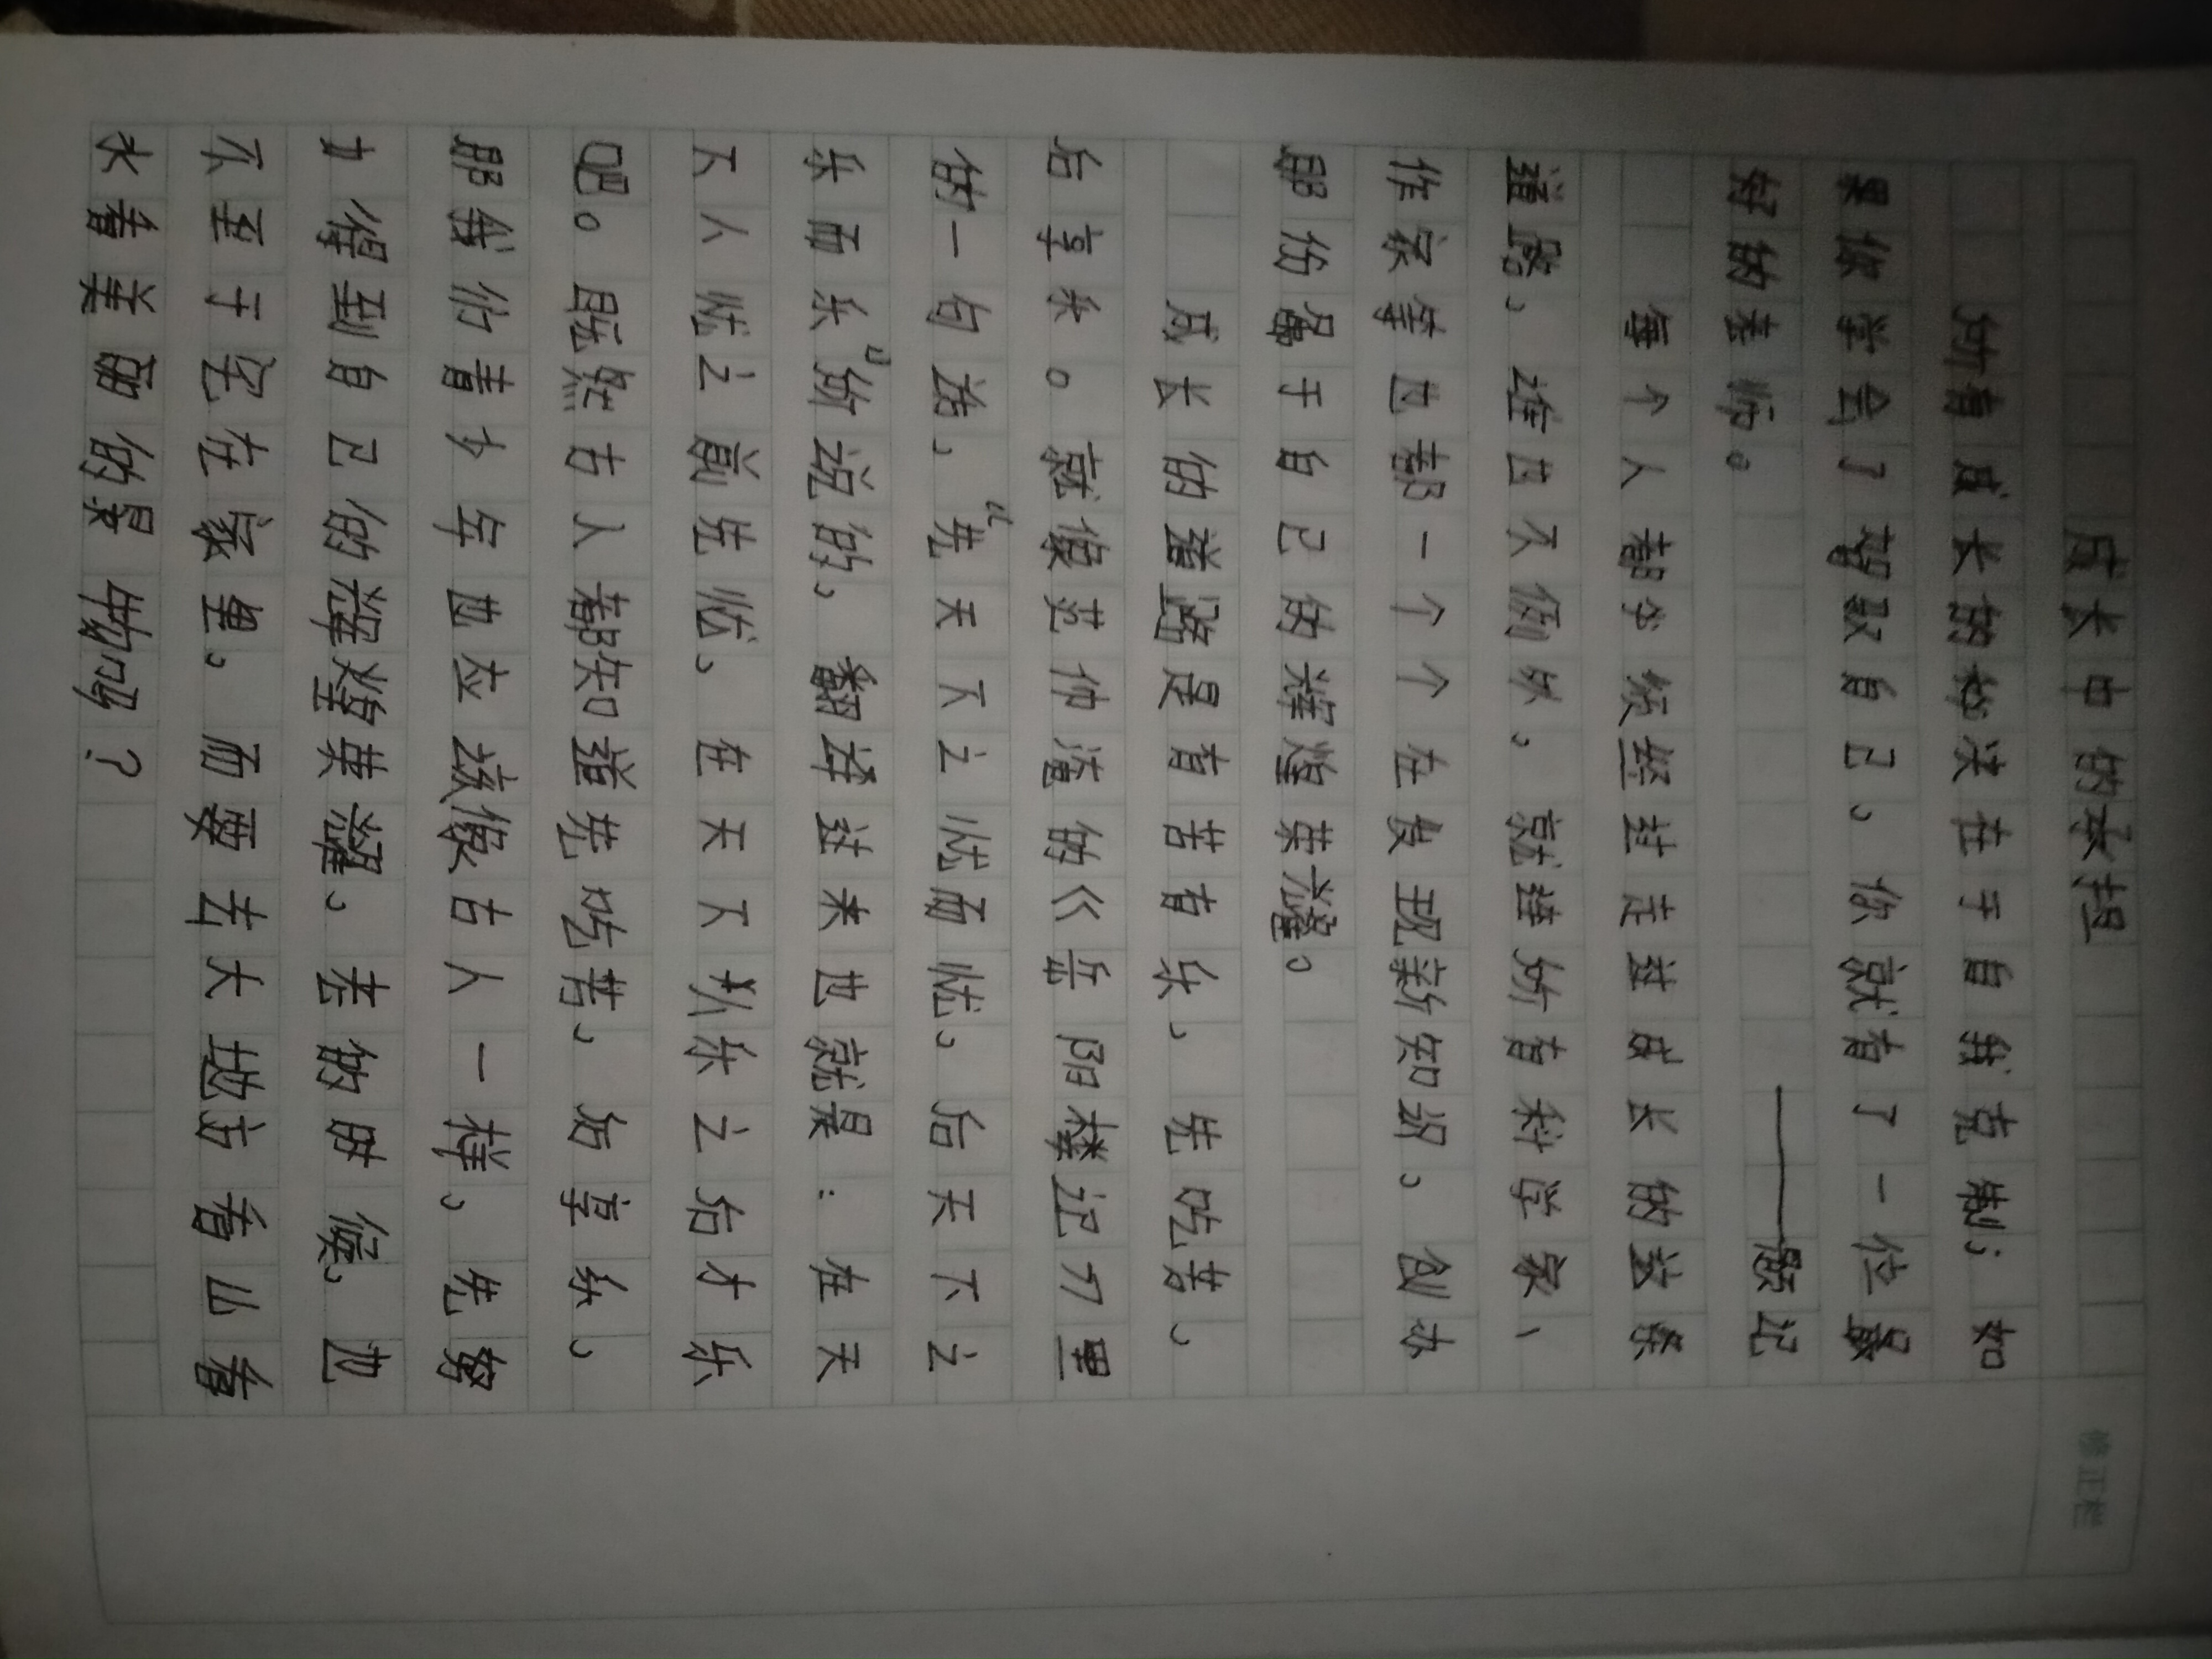 成长中的承担
所有成长的秘诀在于自我克制；如
果你学会了驾驭自己，你就有了一位最
好的老师。
——题记
每个人都必须经过走过成长的这条
道路，谁也不例外，就连所有科学家、
作家等也都一个个在发现新知识，创办
那份属于自己的辉煌荣耀。
成长的道路是有苦有乐，先吃苦，
后享乐。就像范仲淹的《岳阳楼记》里
的一句话，“先天下之忧而忧，后天下之
乐而乐”所说的，翻译过来也就是：在天
下人忧之前先忧，在天下人乐之后才乐
吧。既然古人都知道先吃苦，后享乐，
那我们青少年也应该像古人一样，先努
力得到自己的辉煌荣耀，老的时候，也
不至于宅在家里，而要去大地方看山看
水看美丽的景物吗？
修正栏